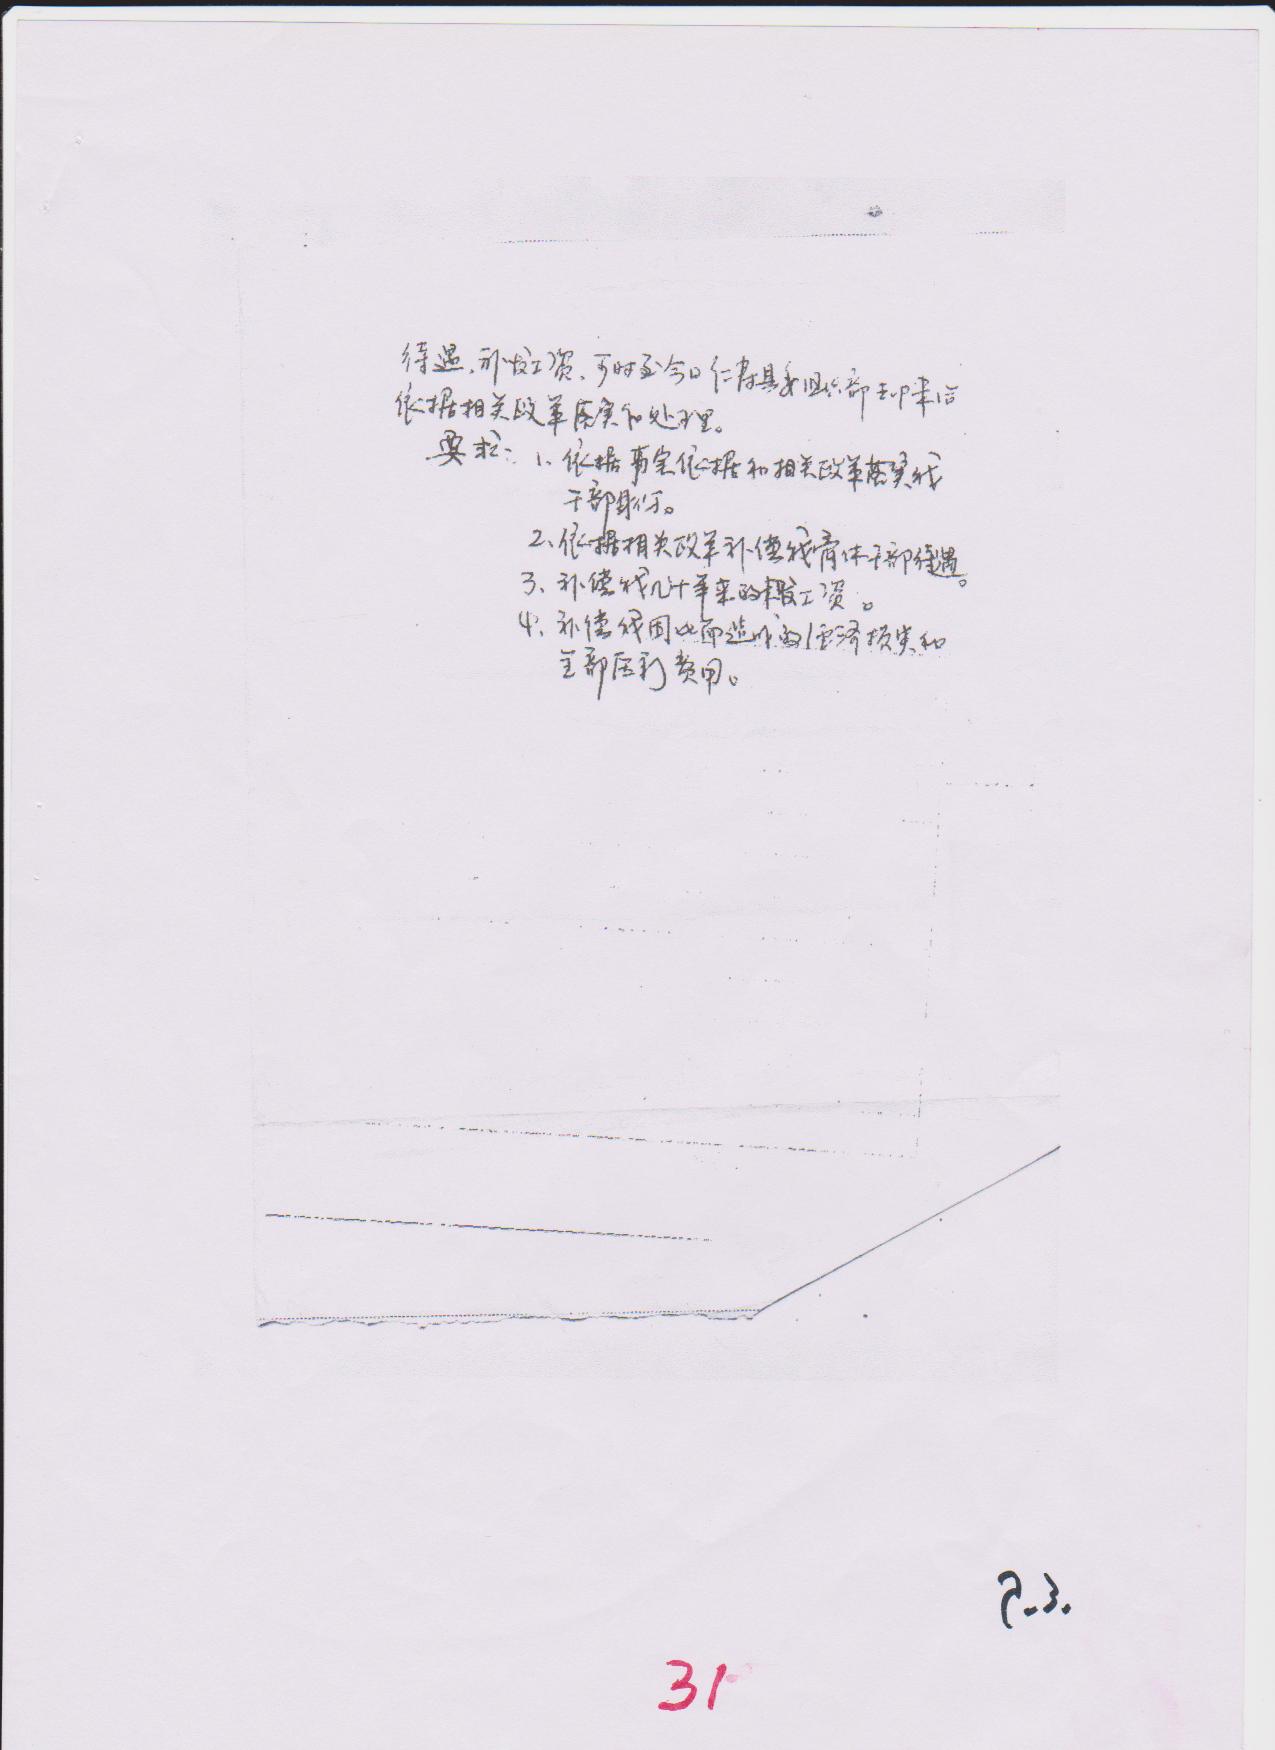 待遇、补发工资、可时至今日仁寿县委组织部却未给
依据相关政策落实和处理。
要求：1、依据事实依据和相关政策落实我
干部身份。
2、依据相关政策补偿我 干部待遇。
3、补偿我几十年来的 工资。
4、补偿我因此而造成的经济损失和
全部压利费用。
P.3.
31